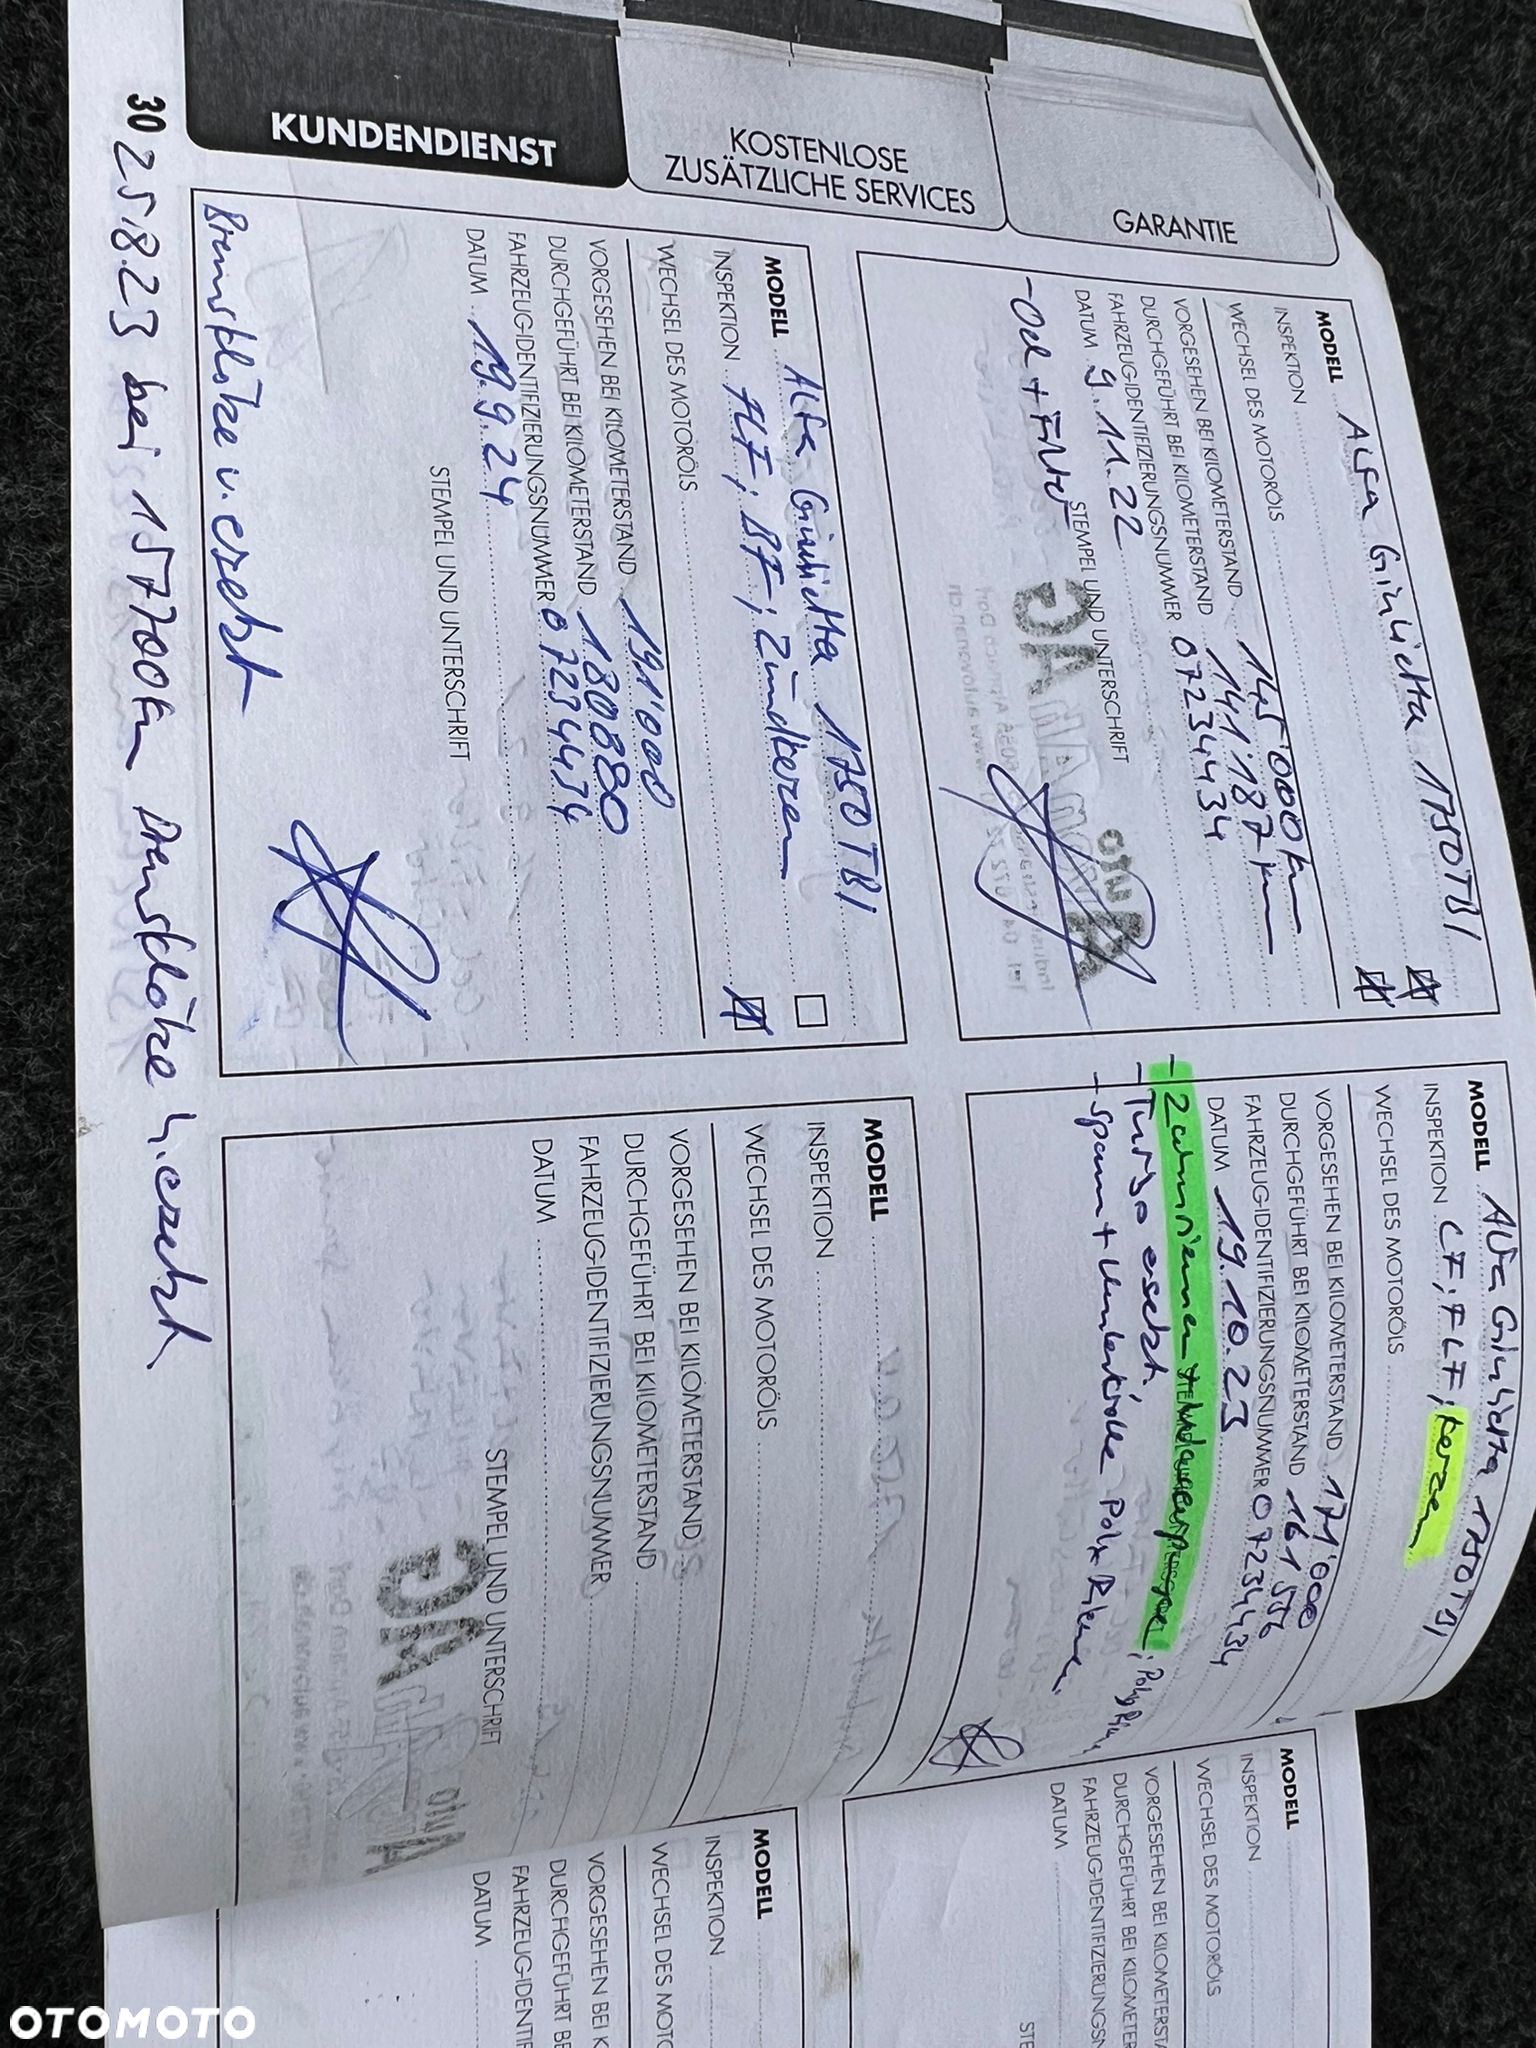 30
KUNDENDIENST
KOSTENLOSE
ZUSÄTZLICHE SERVICES
GARANTIE
MODELL Alfa Giulietta 1750TBI
INSPEKTION
WECHSEL DES MOTORÖLS
VORGESEHEN BEI KILOMETERSTAND 145'000km
DURCHGEFÜHRT BEI KILOMETERSTAND 141'187km
FAHRZEUG-IDENTIFIZIERUNGSNUMMER 07234434
DATUM 9.11.22
STEMPEL UND UNTERSCHRIFT
- Oel + Filter
MODELL Alfa Giulietta 1750TBI
INSPEKTION CF, FLF, Kerzen
WECHSEL DES MOTORÖLS
VORGESEHEN BEI KILOMETERSTAND 171'000
DURCHGEFÜHRT BEI KILOMETERSTAND 161556
FAHRZEUG-IDENTIFIZIERUNGSNUMMER 07234434
DATUM 19.10.23
- Zahnriemen
- Turbo ersetzt,
- Spann + Poly Riemen.
MODELL Alfa Giulietta 1750TBI
INSPEKTION FLF, BF, Zündkerzen
WECHSEL DES MOTORÖLS
VORGESEHEN BEI KILOMETERSTAND 191'000
DURCHGEFÜHRT BEI KILOMETERSTAND 180880
FAHRZEUG-IDENTIFIZIERUNGSNUMMER 07234434
DATUM 19.9.24
STEMPEL UND UNTERSCHRIFT
Bremsklötze v. ersetzt
MODELL
INSPEKTION
WECHSEL DES MOTORÖLS
VORGESEHEN BEI KILOMETERSTAND
DURCHGEFÜHRT BEI KILOMETERSTAND
FAHRZEUG-IDENTIFIZIERUNGSNUMMER
DATUM
STEMPEL UND UNTERSCHRIFT
25.8.23 bei 157700km Bremsklötze h. ersetzt
MODELL
INSPEKTION
WECHSEL DES MOTORÖLS
VORGESEHEN BEI KILOMETERSTA
DURCHGEFÜHRT BEI KILOMETER
FAHRZEUG-IDENTIFIZIERUNGSN
DATUM
STE
MODELL
INSPEKTION
WECHSEL DES MOT
VORGESEHEN BEI K
DURCHGEFÜHRT BE
FAHRZEUG-IDENTIF
DATUM
OTOMOTO